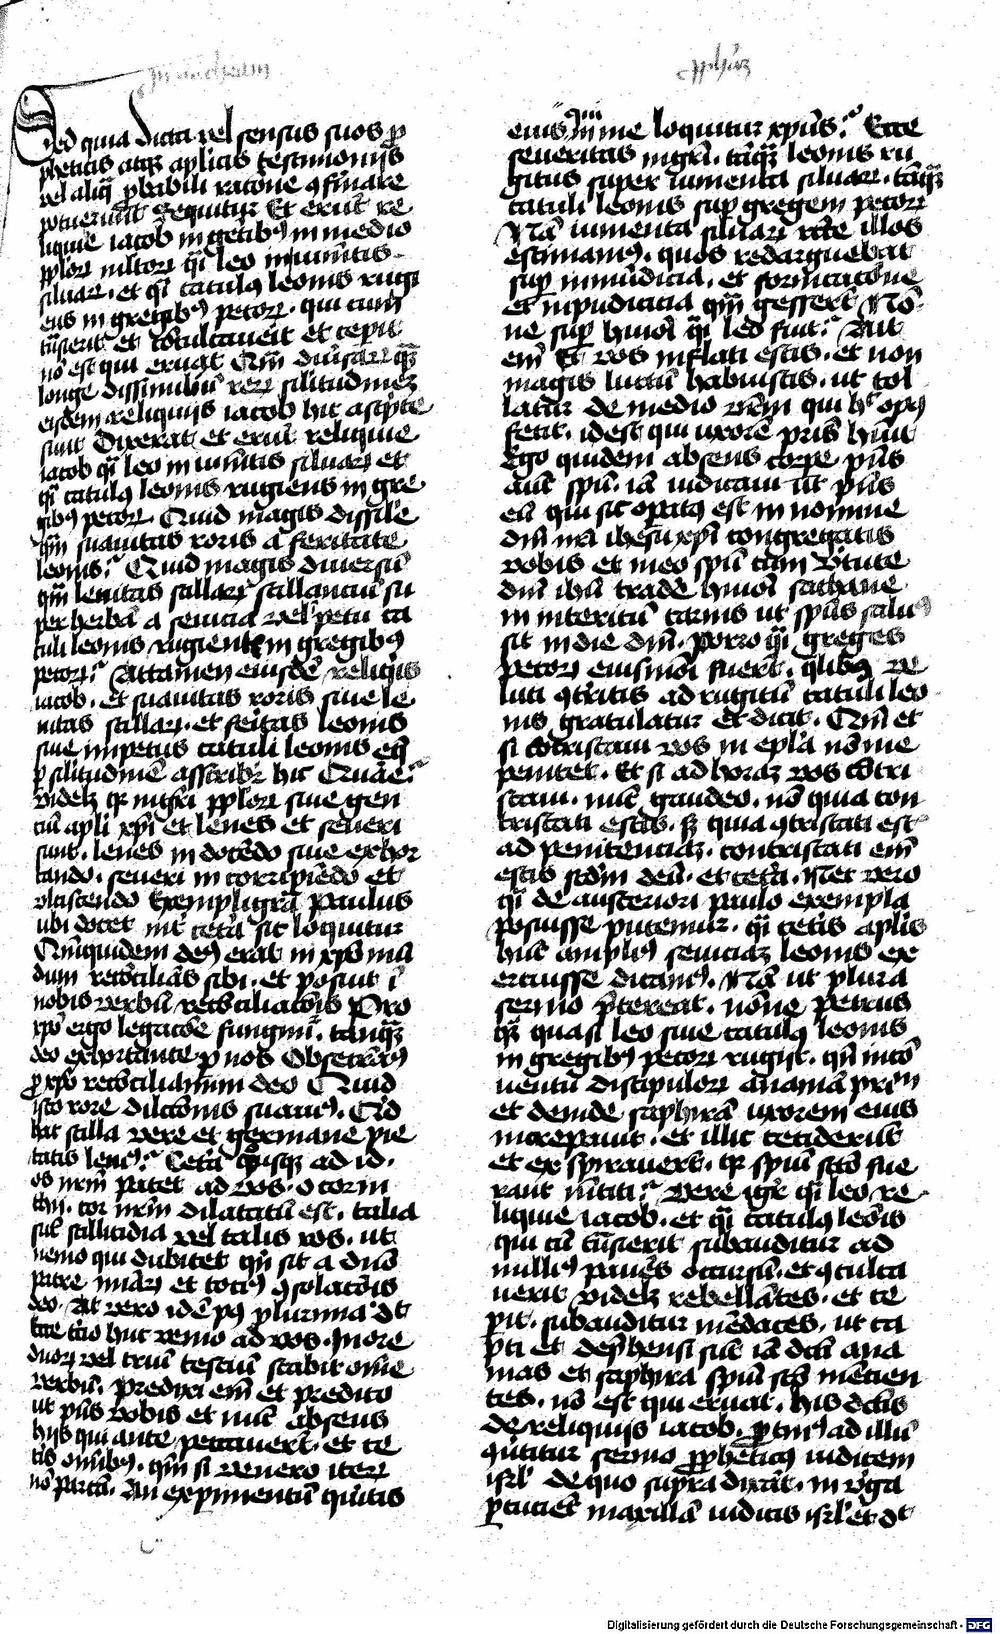 In micheam
pphm̄
Sed quia dicta vel sensus suos ꝓ
pheticis atqꝫ aplicis testimoniis
vel aliq̄ ꝓbabili ratōne ꝯfirmare
potuerunt Sequitur Et erūt re
liquie iacob in gētibꝰ in medio
ppl̄oꝝ mltoꝝ q̄i leo in iumētis
siluaꝝ · et q̄i catulꝰ leonis rugi
ens in gregibꝰ pecoꝝ · qui cum
trāsierit et cōculcaverit et ceperit
nō est qui eruat
longe dissimiliū reꝝ silitudinēꝫ
eisdem reliquiis iacob hic ascp̄te
sunt Dixerat et erūt reliquie
iacob q̄i leo in iumētis siluaꝝ et
q̄i catulꝰ leonis rugiens in gre
gibꝰ pecoꝝ · Quid magis dissile
q̄m suauitas roris a feritate
leonis? Quid magis diuersū
q̄m lenitas stillaꝝ stillanciū su
per herbā a seuicia vel īpetu ca
tuli leonis rugientis in gregibꝰ
pecoꝝ? Attamen eiusdē reliq̄is
iacob · et suauitas roris siue le
nitas stillaꝝ · et feritas leonis
siue impetus catuli leonis
ꝑ silitudinē asscribit̄ hic Quare?
videlꝫ qꝛ
ciū apl̄i xp̄i et lenes et seueri
sunt · lenes in docēdo siue exhor
tando · seueri in corripiēdo et
vlciscendo Exempli grā Paulus
ubi docet int̄ cetera sic loquitur
Qm̄quidem deꝰ erat in xp̄o mū
dum recōciliās sibi · et posuit ī
nobis verbū recōciliatōis Pro
xp̄o ergo legatōe fungimur · tanq̄ꝫ
deo exhortante ꝑ nos Obsecramꝰ
ꝓ xp̄o recōciliamini deo Quid
isto rore dilcōnis suauiꝰ · Qid
hac stilla vere et germane pie
tatis leniꝰ? Cetā quisqꝫ ad id ·
os nr̄m patet ad vos · o corin
thij · cor nr̄m dilatatū est · talia
sūt stillicidia vel talis ros · ut
nemo qui dubitet qn̄ sit a dn̄o
patre miāꝝ et tociꝰ ꝯsolatōis
deo · At vero idē pꝰ plurima dt̄
Ecce tcio huc venio ad vos · In ore
duoꝝ vel triū testiū stabit om̄e
verbū · Predixi em̄ et predico
ut p̄ns vobis et nūc absens
hijs qui ante peccauerūt · et ce
teris om̄ibꝰ · qm̄ si venero iteꝝ
nō parcā · An expimentū q̄ritis
eius qui in me loquitur xp̄us? Ecce
seueritas mgr̄i · tāq̄ꝫ leonis ru
gitus super iumenta siluaꝝ · tāq̄ꝫ
catuli leonis sup̄ gregem pecoꝝ
Nā iumenta siluaꝝ rc̄te illos
estimamꝰ · quos redarguebat
sup̄ inmūdicia · et fornicatōne
et inpudicicia qm̄ gesserūt Nō ·
ne sup̄ hmōi q̄i leo fuit? Ait
em̄ Et vos inflati estis · et non
magis luctū habuistis · ut tol
latur de medio vrm̄ qui hͦ opꝰ
fecit · id est qui uxorē pris hūit
Ego quidem absens corpe p̄ns
aut̄ spū · iā iudicaui ut p̄ns
eū qui sic opatꝰ est in nomine
dn̄i nr̄i ihesu xp̄i congregatis
vobis et meo spū cum v̄tute
dn̄i ihū trade hmōi sathane
in interitū carnis ut sp̄us saluꝰ
sit in die dn̄i · Porro q̄i greges
pecoꝝ eiusmōi fuerūt · q̄libꝰ ve
luti ꝯtritis ad rugitū catuli leo
nis gratulatur et dicit · Qm̄ et
si cōtristaui vos in epl̄a nō me
penitet · Et si ad horāꝫ vos cōtri
staui · nūc gaudeo · nō quia con
tristati estis · sꝫ quia ꝯtristati est̄
ad penitenciāꝫ · contristati em̄
estis scd̄m deū · et cetera · Nec vero
q̄i de austeriori paulo exempla
posuisse putemur · q̄i ceteris aplīs
hūc ampliꝰ seuiciāꝫ leonis ex
ercuisse dicamꝰ · Nā ut plura
sermo p̄tereat · nōne Petrus
q̄ꝫ quasi leo siue catulꝰ leonis
in gregibꝰ pecoꝝ rugijt · qn̄ in cō
uentū discipuloꝝ ananiā primū
et deinde saphirā uxorem eius
increpauit · et illic ceciderūt
et exspirauerūt · qꝛ spūi scō fue
rant mētiti? Vere igit̄ q̄i leo re
liquie iacob · et q̄i catulꝰ leōis
qui cū trāsierit subauditur ad
nulliꝰ pauēs occursū · et ꝯculca
uerit videlꝫ rebellātes · et ce
perit · subauditur mēdaces · ut ca
pti et dephensi sūt iā dicti ana
nias et saphira spūi scō mēcien
tes · nō est qui eruat · his dictis
de reliquijs iacob · ꝑtinꝰ ad illū
q̄rtitur sermo ꝓpheticꝰ iudicem
isrl̄ de quo supra dixit · in v̄ga
ꝑcucient maxillā iudicis isrl̄ et dt̄
Digitalisierung gefördert durch die Deutsche Forschungsgemeinschaft · DFG